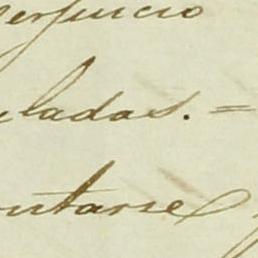 perjuicio
ladas. =
ntarse